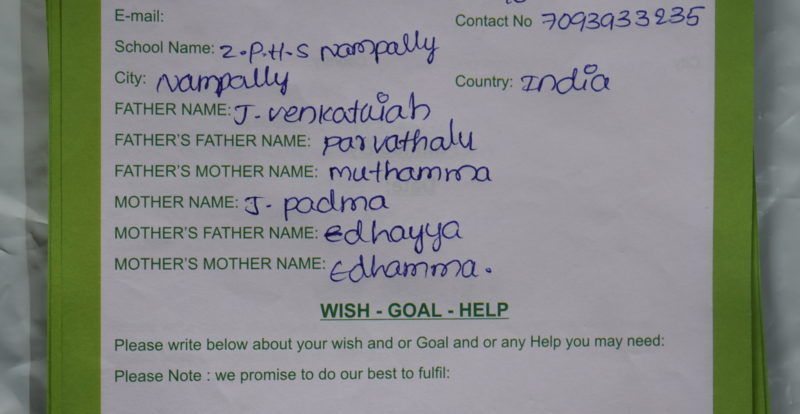 E-mail: Contact No 7093933235
School Name: Z.P.H.S Nampally
City: Nampally Country: India
FATHER NAME: J. venkataiah
FATHER'S FATHER NAME: parvathalu
FATHER'S MOTHER NAME: muthamma
MOTHER NAME: J. padma
MOTHER'S FATHER NAME: Edhayya
MOTHER'S MOTHER NAME: Edhamma.
WISH - GOAL - HELP
Please write below about your wish and or Goal and or any Help you may need:
Please Note : we promise to do our best to fulfil: